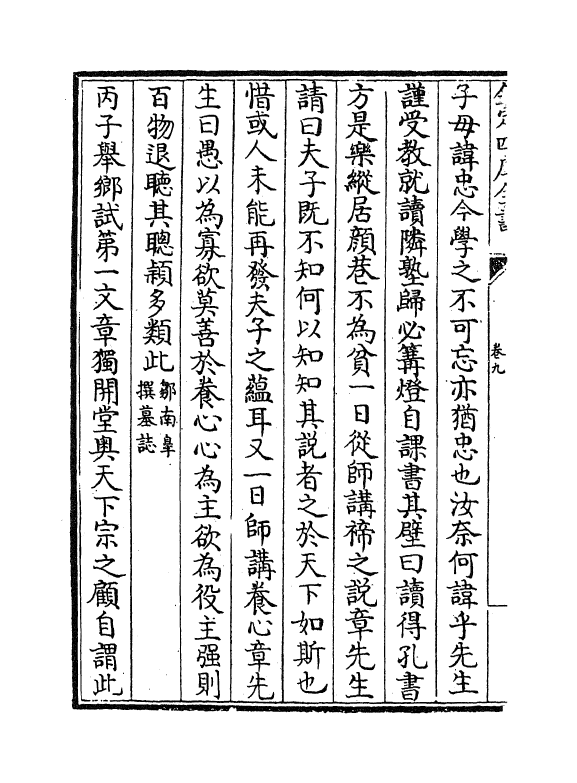 欽定四庫全書
卷九
子毋諱忠今學之不可忘亦猶忠也汝奈何諱乎先生
謹受教就讀隣塾歸必篝燈自課書其壁曰讀得孔書
方是樂縱居顔巷不為貧一日從師講禘之說章先生
請曰夫子既不知何以知知其說者之於天下如斯也
惜或人未能再發夫子之蘊耳又一日師講養心章先
生曰愚以為寡欲莫善於養心心為主欲為役主强則
百物退聽其聰穎多類此鄒南臯
撰墓誌
丙子舉鄉試第一文章獨開堂奥天下宗之顧自謂此